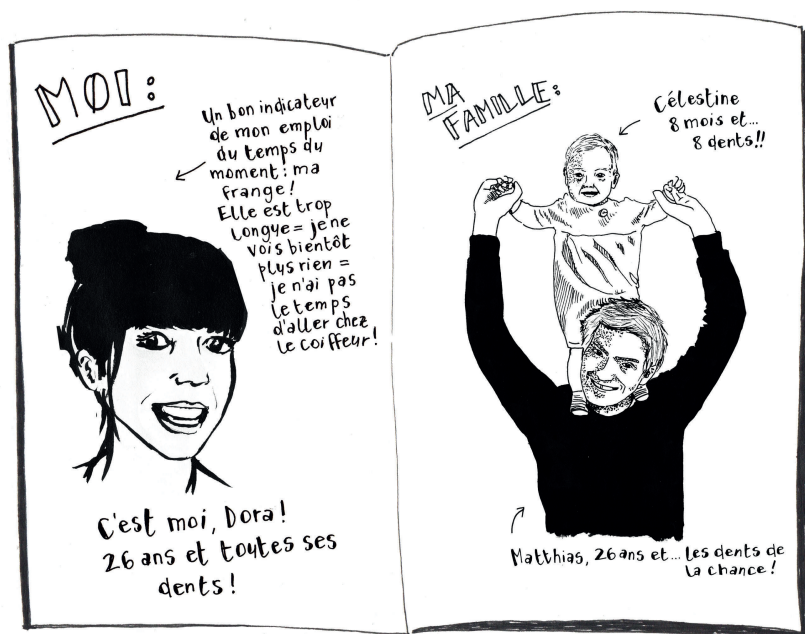 MOI:
Un bon indicateur
de mon emploi
du temps du
moment: ma
frange!
Elle est trop
longue = je ne
vois bientôt
plus rien =
je n'ai pas
le temps
d'aller chez
le coiffeur!
C'est moi, Dora!
26 ans et toutes ses
dents!
MA
FAMILLE:
Célestine
8 mois et...
8 dents!!
Matthias, 26 ans et... les dents de
la chance!